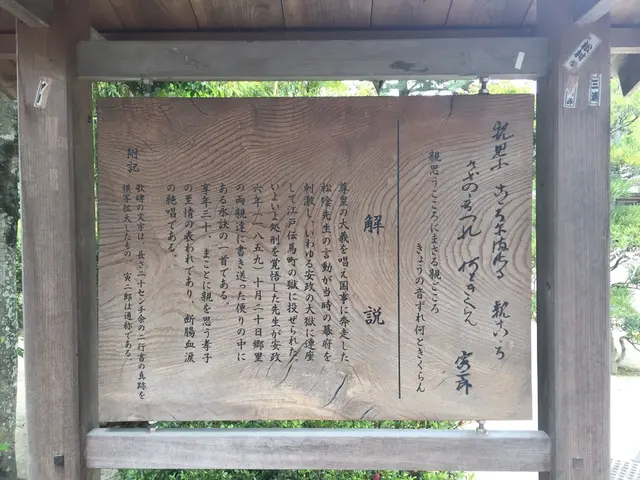 親思ふこころにまさる親ごころ
けふの音づれ何ときくらん
寅二郎
親思うこころにまさる親ごころ
きょうの音ずれ何ときくらん
解説
尊皇の大義を唱え国事に奔走した
松陰先生の言動が当時の幕府を
刺激し、いわゆる安政の大獄に連座
して江戸伝馬町の獄に投ぜられた。
いよいよ処刑を覚悟した先生が安政
六年(一八五九)十月二十日郷里
の両親達に書き送った便りの中に
ある永訣の一首である。
享年三十、まことに親を思う孝子
の至情の表われであり、断腸血涙
の絶唱である。
附記
歌碑の文字は、長さ二十センチ余の一行書の真跡を
模写拡大したもの、寅二郎は通称である。